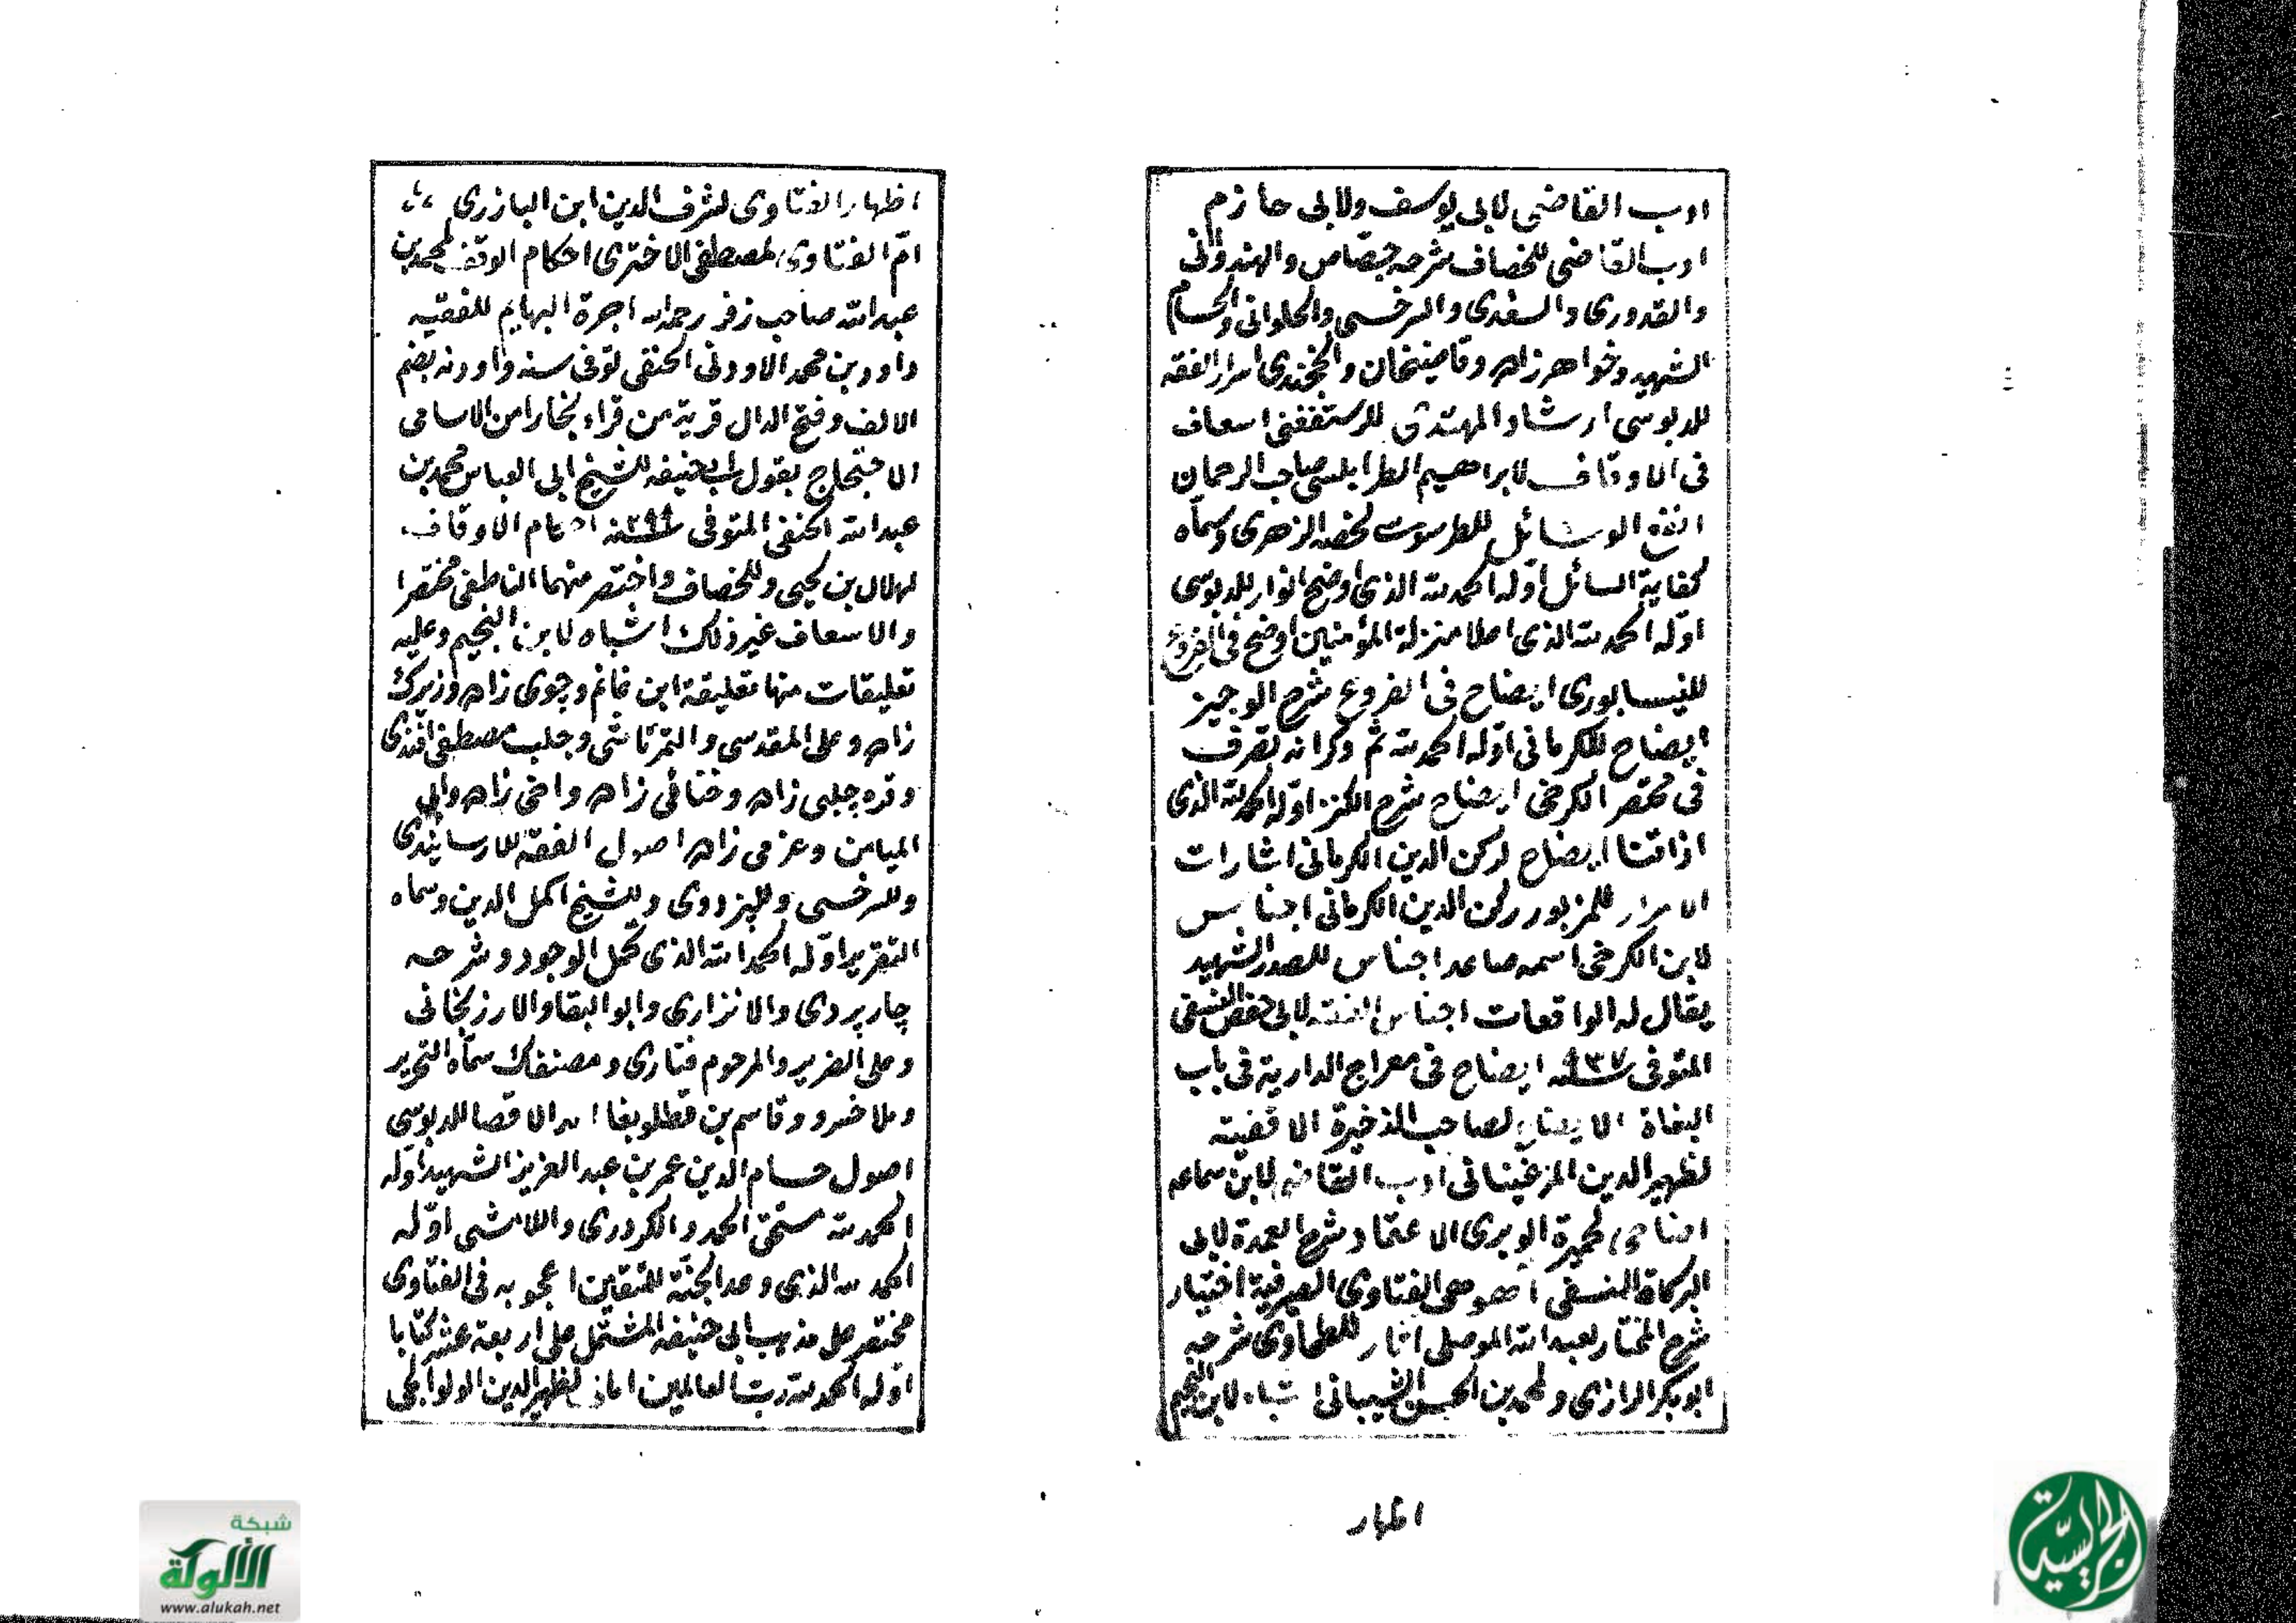 ادب القاضى لابى يوسف ولابى حازم
ادب القاضى للخصاف شرحه جصاص والهندوانى
والقدورى والسغدى والسرخسى والحلوانى والحسام
الشهيد وخواهر زاده وقاضيخان والخجندى اسرار الفقه
للدبوسى ارشاد المهتدى للرستغفنى اسعاف
فى الاوقاف لابراهيم الطرابلسى صاحب الرحمان
انفع الوسائل للطرسوسى لخصه الزهرى وسماه
كفاية السائل اوله الحمد لله الذى اوضح انوار للدبوسى
اوله الحمد لله الذى اعلا منزلة المؤمنين اوضح فى الفروع
للنيسابورى ايضاح فى الفروع شرح الوجيز
ايضاح للكرمانى اوله الحمد لله ثم ذكر انه تصرف
فى مختصر الكرخى ايضاح شرح الكنز اوله الحمد لله الذى
اذاقنا ايضاح لركن الدين الكرمانى اشارات
الاسرار للمزبور ركن الدين الكرمانى اجناس
لابن الكرخى اسمه صاعد اجناس للصدر الشهيد
يقال له الواقعات اجناس الفقه لابى حفص النسفى
المتوفى سنة ٥٣٧ ايضاح فى معراج الدارية فى باب
البغاة الايضاح لصاحب الذخيرة الاقضيته
لظهير الدين المرغينانى ادب القاضى لابن سماعه
لحميرة الوبرى الاعتماد شرح العمدة لابى
البركاة النسفى اهوهى الفتاوى الصيرفية اختيار
شرح المختار لعبد الله الموصلى اثار للطحاوى شرحه
ابو بكر الرازى ولمحمد بن الحسن الشيبانى اشباه لابن النجيم
اظهار
اظهار الفتاوى لشرف الدين ابن البازرى
امّ الفتاوى لمصطفى الاخترى احكام الوقف لمحمد بن
عبد الله صاحب زفر رحمه الله اجرة البهايم للفقيه
داود بن محمد الاودنى الحنفى توفى سنه واودنه بضم
الالف وفتح الدال قرية من قراء بخارا من الاسامى
الاحتجاج بقول ابى حنيفه للشيخ ابى العباس محمد بن
عبد الله الحنفى المتوفى سنة احكام الاوقاف
لهلال بن يحيى وللخصاف واختصر منهما الناطفى مختصرا
والاسعاف غير ذلك اشباه لابن النجيم وعليه
تعليقات منها تعليقة ابن غانم وجوى زاده وزيرك
زاده وعلى المقدسى والتمرتاشى وجلب مصطفى افندى
وقره چلبى زاده وحنائى زاده واخى زاده وابى
الميامن وعزمى زاده اصول الفقه للارسابندى
وللسرخسى وللبزدوى وللشيخ اكمل الدين وسماه
التقرير اوله الحمد لله الذى كمل الوجود وشرحه
چارپردى والانزارى وابو البقا والارزنجانى
وعلى الضرير والمرحوم فنارى ومصنفك سماه التحرير
وملا خسرو وقاسم بن قطلوبغا الاقصا للدبوسى
اصول حسام الدين عمر بن عبد العزيز الشهيد اوله
الحمد لله مستحق الحمد والكردرى واللامشى اوّله
الحمد لله الذى وعد الجنّة للمتقين اعجوبه فى الفتاوى
مختصر على مذهب ابى حنيفه المشتمل على اربعة عشر كتابا
اوله الحمد لله ربّ العالمين لظهير الدين الولوالجى
شبكة
الألوكة
www.alukah.net
الجريسية